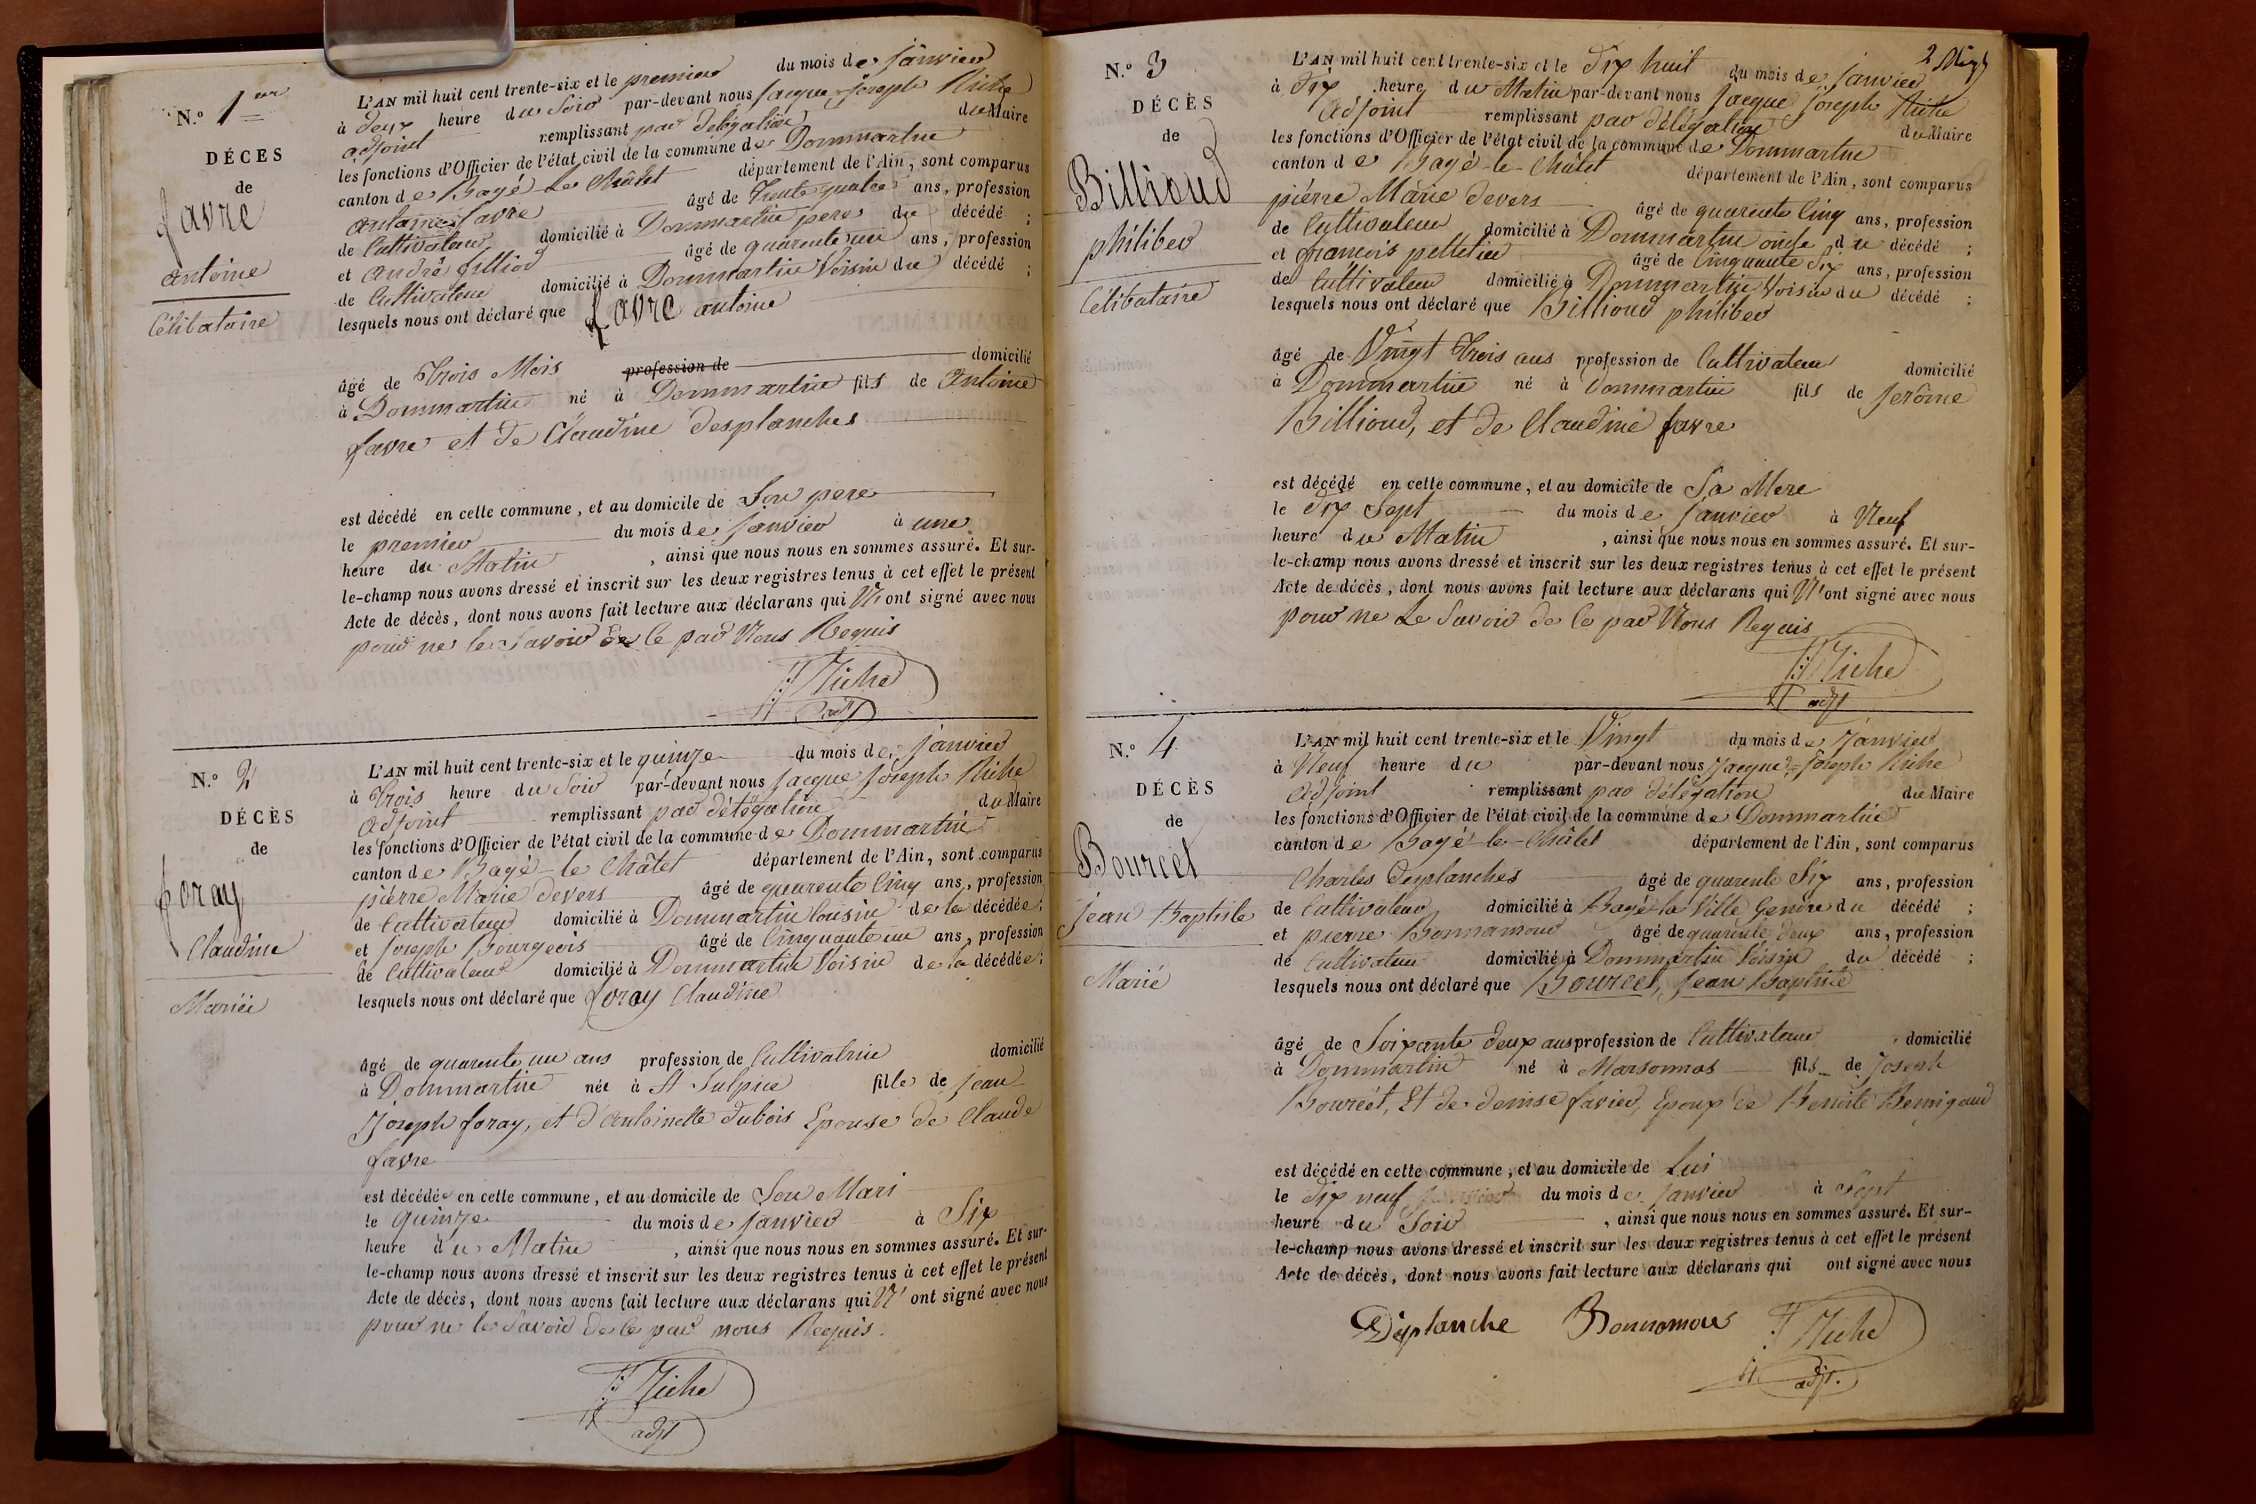 N.° 1er
DÉCES
de
favre
antoine
Célibataire
L'AN mil huit cent trente-six et le premier du mois de janvier
à deux heure du Soir par-devant nous jacque joseph Riche
adjoint remplissant par délégation du Maire
les fonctions d'Officier de l'état civil de la commune de Dommartin
canton de Bagé le Châtel département de l'Ain, sont comparus
antoine favre âgé de Trente quatre ans, profession
de Cultivateur domicilié à Dommartin pere du décédé ;
et andré filliod âgé de quarente un ans, profession
de Cultivateur domicilié à Dommartin Voisin du décédé ;
lesquels nous ont déclaré que favre antoine
âgé de Trois Mois profession de domicilié
à Dommartin né à Dommartin fils de antoine
favre et de Claudine desplanches
est décédé en cette commune, et au domicile de Son pere
le premier du mois de janvier à une
heure du Matin , ainsi que nous nous en sommes assuré. Et sur-
le-champ nous avons dressé et inscrit sur les deux registres tenus à cet effet le présent
Acte de décès, dont nous avons fait lecture aux déclarans qui N'ont signé avec nous
pour ne le Savoir de ce par Nous Requis
JJ Riche
adjt
N.° 2
DÉCÈS
de
foray
Claudine
Mariée
L'AN mil huit cent trente-six et le quinze du mois de janvier
à Trois heure du Soir par-devant nous jacque joseph Riche
adjoint remplissant par délégation du Maire
les fonctions d'Officier de l'état civil de la commune de Dommartin
canton de Bagé le Châtel département de l'Ain, sont comparus
pierre Marie devers âgé de quarente Cinq ans, profession
de Cultivateur domicilié à Dommartin Cousin de la décédée ;
et joseph Bourgeois âgé de Cinquante un ans, profession
de Cultivateur domicilié à Dommartin Voisin de la décédée ;
lesquels nous ont déclaré que foray Claudine
âgé de quarente un ans profession de Cultivatrice domicilié
à Dommartin née à St Sulpice fille de jean
Joseph foray, et d'antoinette dubois Epouse de Claude
favre
est décédée en cette commune, et au domicile de Son Mari
le quinze du mois de janvier à Six
heure du Matin , ainsi que nous nous en sommes assuré. Et sur-
le-champ nous avons dressé et inscrit sur les deux registres tenus à cet effet le présent
Acte de décès, dont nous avons fait lecture aux déclarans qui N'ont signé avec nous
pour ne le Savoir de ce par nous Requis.
JJ Riche
adjt
2
N.° 3
DÉCÈS
de
Billioud
philiber
Célibataire
L'AN mil huit cent trente-six et le dix huit du mois de janvier
à dix heure du Matin par-devant nous jacque joseph Riche
adjoint remplissant par délégation du Maire
les fonctions d'Officier de l'état civil de la commune de Dommartin
canton de Bagé-le-Châtel département de l'Ain, sont comparus
pierre Marie devers âgé de quarente Cinq ans, profession
de Cultivateur domicilié à Dommartin oncle du décédé ;
et francois pelletier âgé de Cinquante Six ans, profession
de Cultivateur domicilié à Dommartin Voisin du décédé ;
lesquels nous ont déclaré que Billioud philiber
âgé de Vingt Trois ans profession de Cultivateur domicilié
à Dommartin né à Dommartin fils de jerôme
Billioud, et de Claudine favre
est décédé en cette commune, et au domicile de Sa Mere
le dix Sept du mois de janvier à Neuf
heure du Matin , ainsi que nous nous en sommes assuré. Et sur-
le-champ nous avons dressé et inscrit sur les deux registres tenus à cet effet le présent
Acte de décès, dont nous avons fait lecture aux déclarans qui N'ont signé avec nous
pour ne Le Savoir de ce par Nous Requis
JJ Riche
adjt
N.° 4
DÉCÈS
de
Bourcet
jean Baptiste
Marié
L'AN mil huit cent trente-six et le Vingt du mois de janvier
à Neuf heure du par-devant nous jacque joseph Riche
adjoint remplissant par délégation du Maire
les fonctions d'Officier de l'état civil de la commune de Dommartin
canton de Bagé-le-Châtel département de l'Ain, sont comparus
Charles Desplanches âgé de quarente Six ans, profession
de Cultivateur domicilié à Bagé la Ville Gendre du décédé ;
et pierre Bonnamour âgé de quarente deux ans, profession
de Cultivateur domicilié à Dommartin Voisin du décédé ;
lesquels nous ont déclaré que Bourcet, jean Baptiste
âgé de Soixante deux ans profession de Cultivateur domicilié
à Dommartin né à Marsonnas fils de Joseph
Bourcet, Et de denise favier, Epoux de Benoite
est décédé en cette commune, et au domicile de Lui
le dix neuf du mois de janvier à Sept
heure du Soir , ainsi que nous nous en sommes assuré. Et sur-
le-champ nous avons dressé et inscrit sur les deux registres tenus à cet effet le présent
Acte de décès, dont nous avons fait lecture aux déclarans qui ont signé avec nous
Desplanche Bonnamour JJ Riche
adjt.